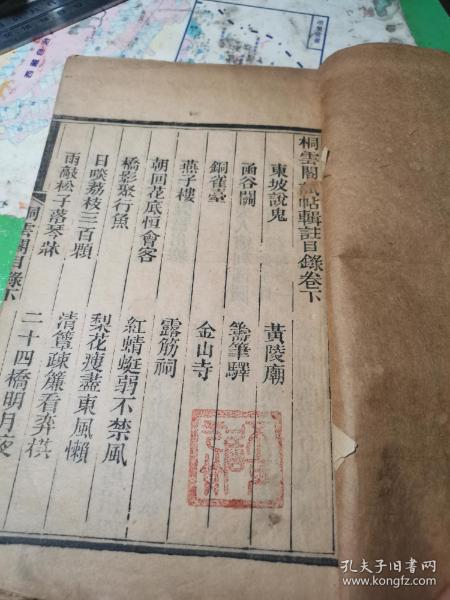 桐雲閣試帖輯註目錄卷下
東坡說鬼
黃陵廟
函谷關
籌筆驛
銅雀臺
金山寺
燕子樓
露筋祠
朝回花底恒會客
紅蜻蜓弱不禁風
橋影聚行魚
梨花瘦盡東風懶
日啖荔枝三百顆
清簟疎簾看弈棋
雨敲松子落琴牀
二十四橋明月夜
桐雲閣目錄下
孔夫子旧书网
www.kongfz.com